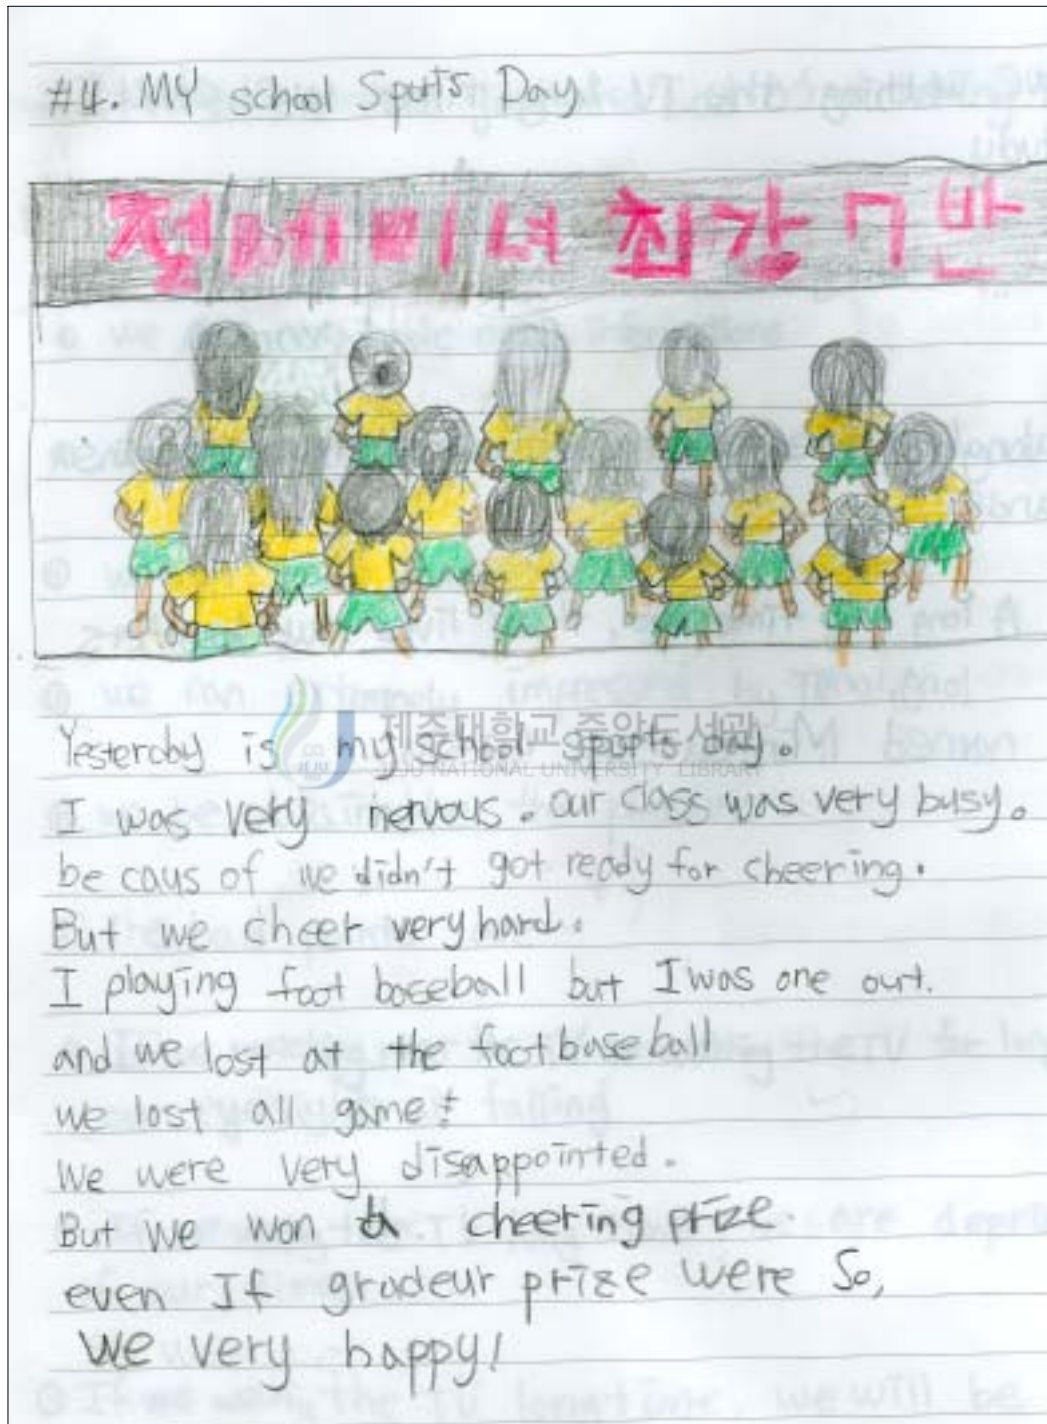 #4. MY school Sports Day
절세미녀 최강 7반
Yesterday is my school sports day.
제주대학교 중앙도서관
JEJU NATIONAL UNIVERSITY LIBRARY
I was very nervous. our class was very busy.
be caus of we didn't got ready for cheering.
But we cheer very hard.
I playing foot baseball but I was one out.
and we lost at the foot baseball
we lost all game!
We were very disappointed.
But we won a cheering prize.
even If gradeur prize were So,
we very happy!